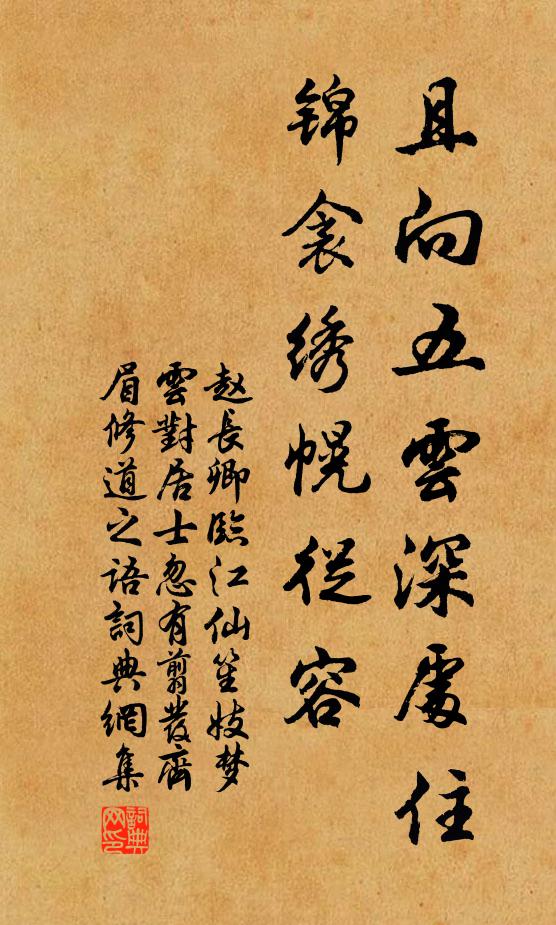 且向五雲深處住
锦衾绣幌從容
赵長卿臨江仙笙妓梦
雲對居士忽有翦發齊
眉修道之语詞典網集
詞典网印